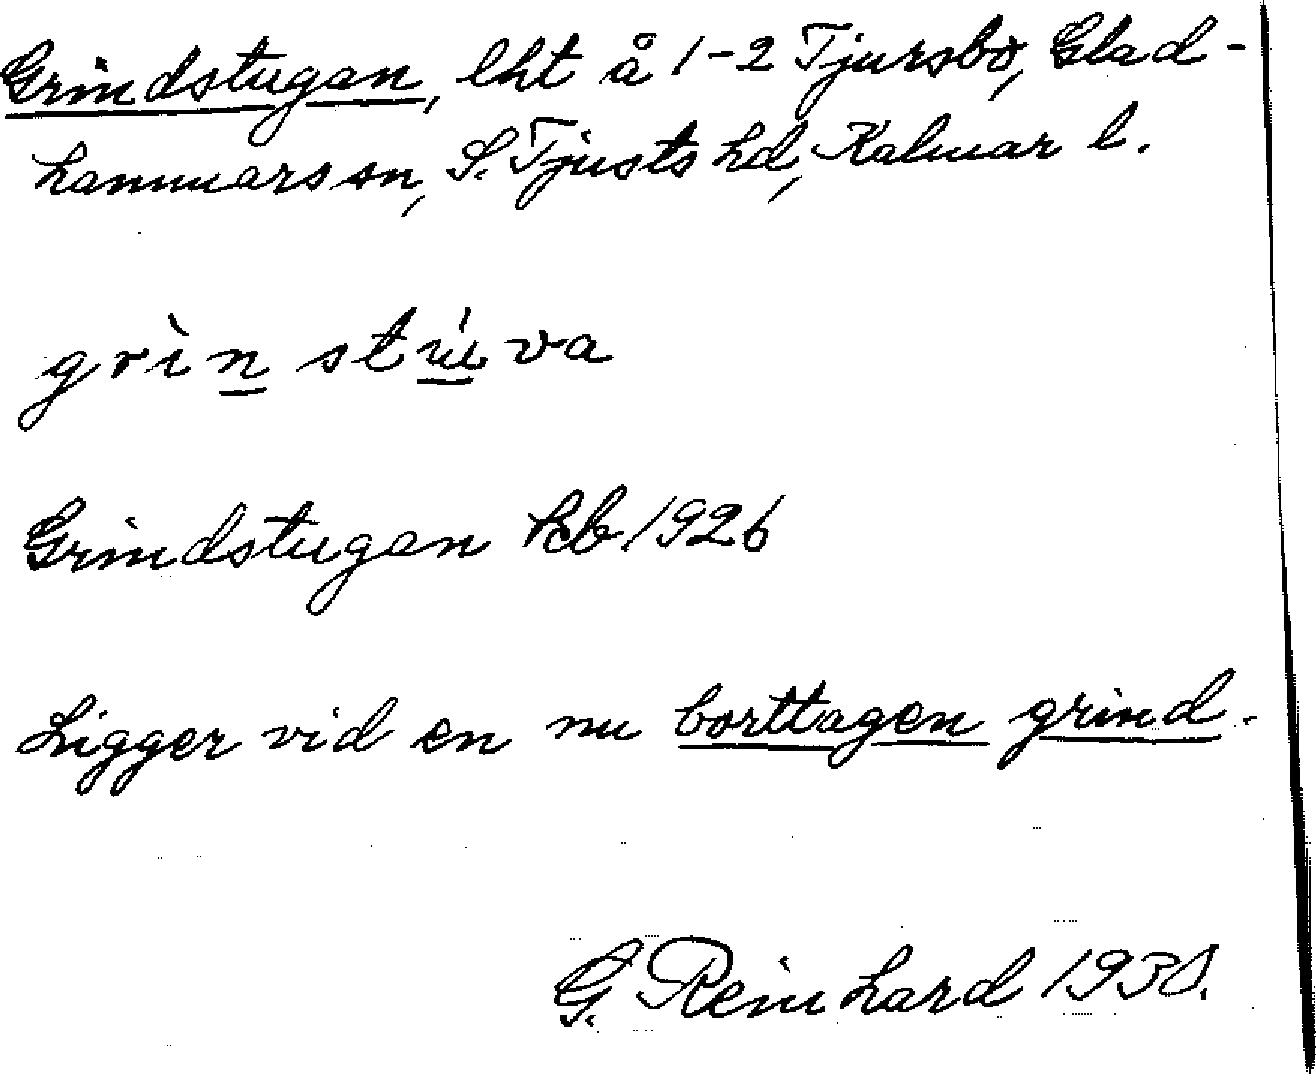 Grindstugan, lht å 1-2 Tjursbo, Glad-
hammars sn, S. Tjusts hd, Kalmar l.
grìn stúva
Grindstugan kb. 1926
Ligger vid en nu borttagen grind.
G. Reinhard